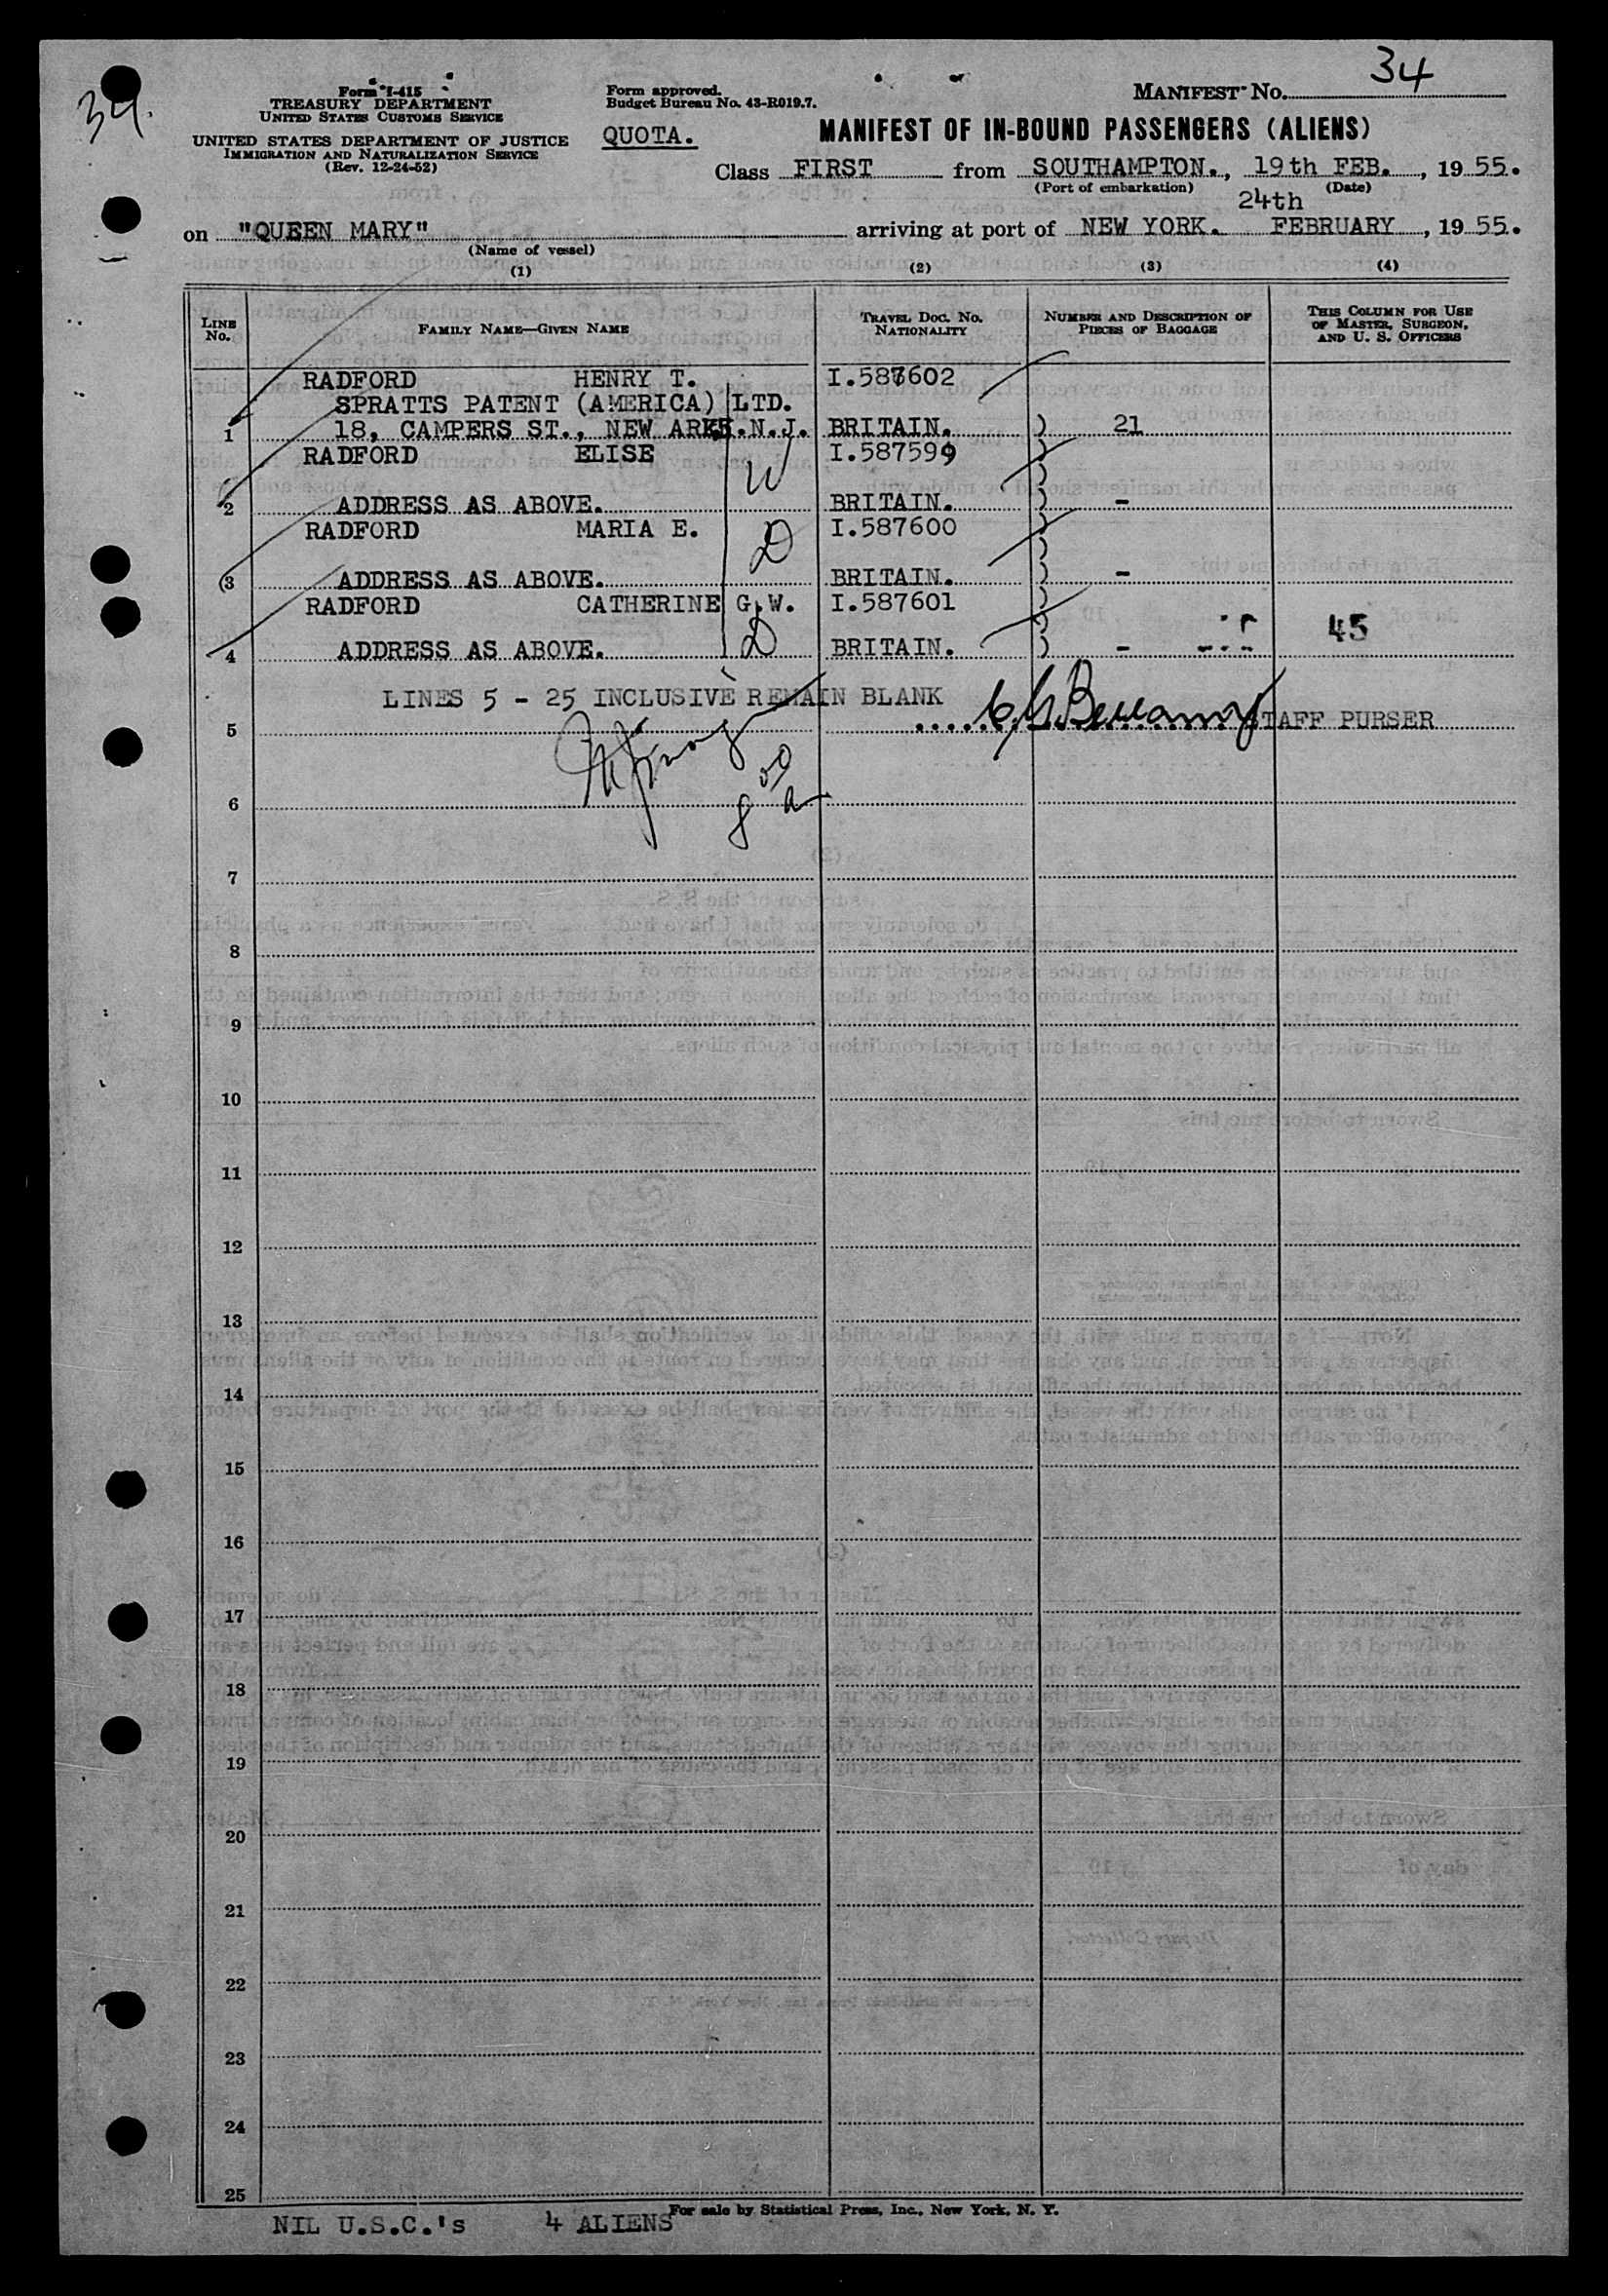 34
34.
Form I-415
TREASURY DEPARTMENT
UNITED STATES CUSTOMS SERVICE
UNITED STATES DEPARTMENT OF JUSTICE
IMMIGRATION AND NATURALIZATION SERVICE
(Rev. 12-24-52)
Form approved.
Budget Bureau No. 43-R019.7.
QUOTA.
MANIFEST No.
MANIFEST OF IN-BOUND PASSENGERS (ALIENS)
Class FIRST from SOUTHAMPTON., 19th FEB., 1955.
(Port of embarkation) (Date)
24th
on "QUEEN MARY" arriving at port of NEW YORK. FEBRUARY, 1955.
(Name of vessel)
(1) (2) (3) (4)
LINE No. FAMILY NAME—GIVEN NAME TRAVEL DOC. NO. NATIONALITY NUMBER AND DESCRIPTION OF PIECES OF BAGGAGE THIS COLUMN FOR USE OF MASTER, SURGEON, AND U. S. OFFICERS
RADFORD HENRY T. I.587602
SPRATTS PATENT (AMERICA) LTD.
1 18, CAMPERS ST., NEW ARK.N.J. BRITAIN. ) 21
RADFORD ELISE I.587599 )
W )
2 ADDRESS AS ABOVE. BRITAIN. ) -
RADFORD MARIA E. I.587600 )
D )
3 ADDRESS AS ABOVE. BRITAIN. ) -
RADFORD CATHERINE G.W. I.587601 )
D ) 45
4 ADDRESS AS ABOVE. BRITAIN. ) -
LINES 5 - 25 INCLUSIVE REMAIN BLANK
5 STAFF PURSER
8 00 a
6
7
8
9
10
11
12
13
14
15
16
17
18
19
20
21
22
23
24
25
For sale by Statistical Press, Inc., New York, N. Y.
NIL U.S.C.'s 4 ALIENS